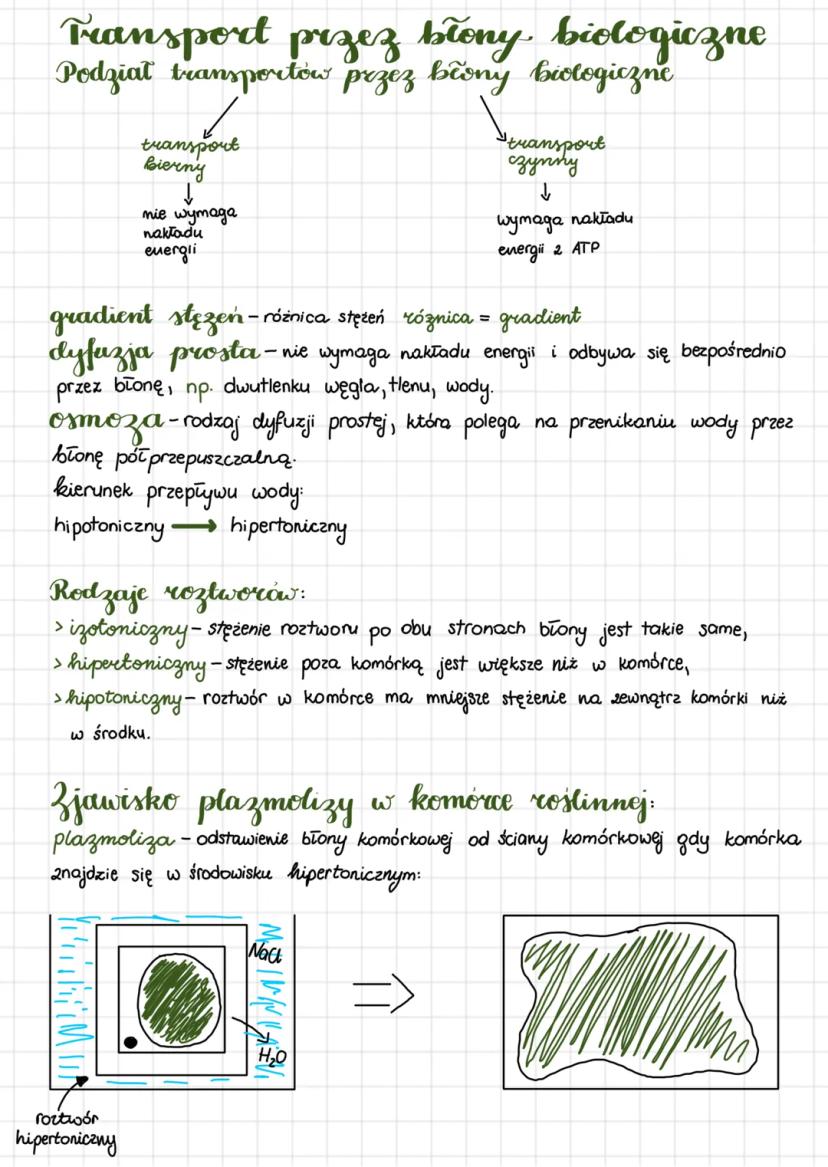 Transport przez błony biologiczne
Podział transportów przez błony biologiczne
transport
bierny
nie wymaga
nakładu
energii
transport
czynny
wymaga nakładu
energii z ATP
gradient stężeń - różnica stężeń różnica = gradient
dyfuzja prosta - nie wymaga nakładu energii i odbywa się bezpośrednio
przez błonę, np. dwutlenku węgla, tlenu, wody.
osmoza - rodzaj dyfuzji prostej, która polega na przenikaniu wody przez
błonę półprzepuszczalną.
kierunek przepływu wody:
hipotoniczny → hipertoniczny
Rodzaje roztworów:
> izotoniczny - stężenie roztworu po obu stronach błony jest takie same,
> hipertoniczny - stężenie poza komórką jest większe niż w komórce,
> hipotoniczny - roztwór w komórce ma mniejsze stężenie na zewnątrz komórki niż
w środku.
Zjawisko plazmolizy w komórce roślinnej:
plazmoliza - odstawienie błony komórkowej od ściany komórkowej gdy komórka
znajdzie się w środowisku hipertonicznym:
NaCl
H₂O
roztwór
hipertoniczny